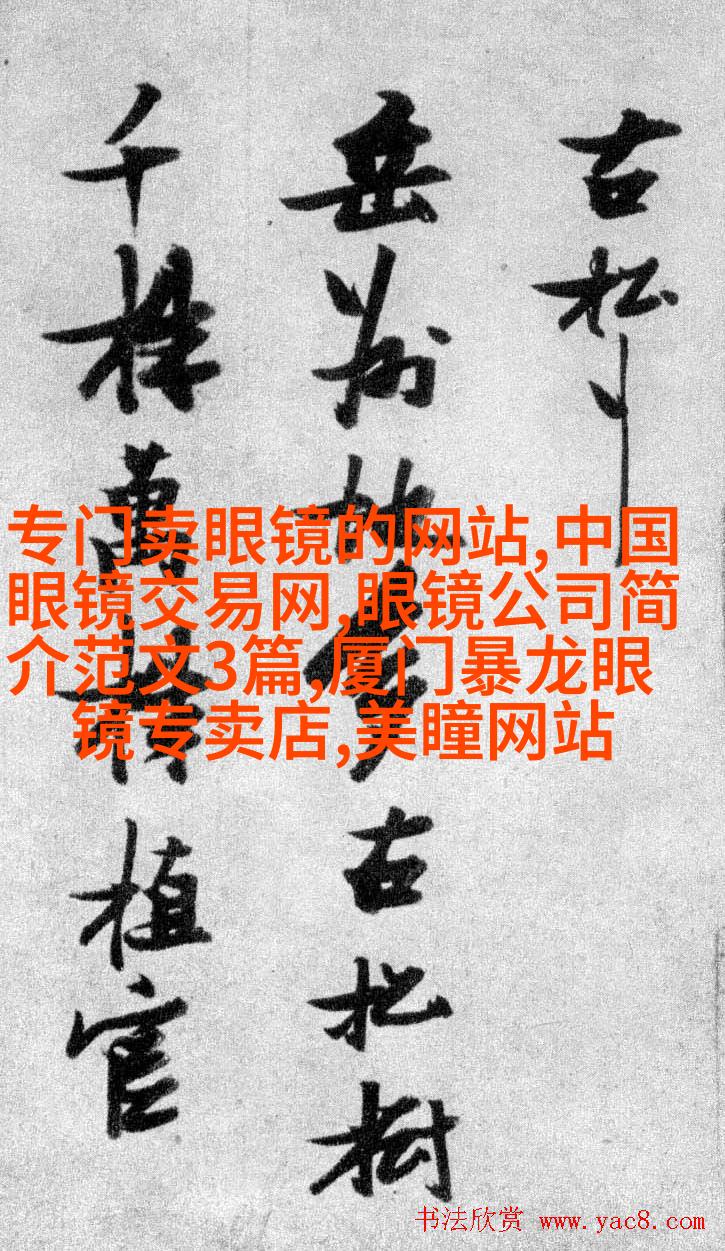 古松
岳州地多古松樹
千株萬株植官
专门卖眼镜的网站,中国
眼镜交易网,眼镜公司简
介范文3篇,厦门暴龙眼
镜专卖店,美瞳网站
书法欣赏 www.yac8.com